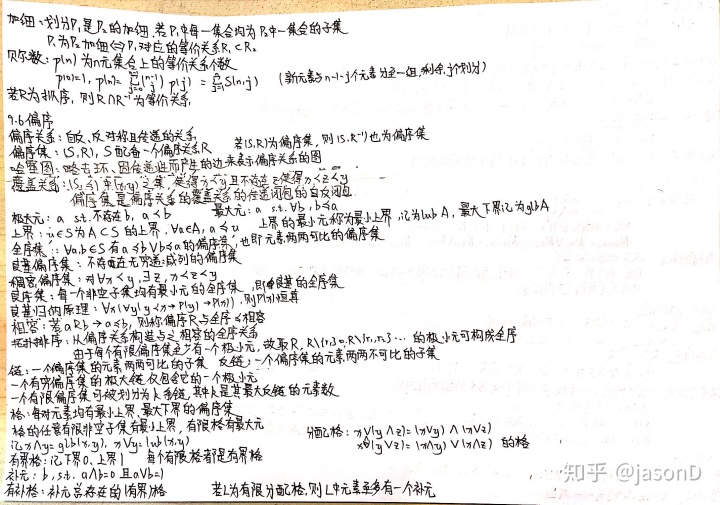 加细:划分P₁是P₂的加细,若P₁中每一集合均为P₂中一集合的子集
P₁为P₂加细⇔P₁对应的等价关系R₁⊂R₂
贝尔数:p(n)为n元集合上的等价关系个数
p(0)=1, p(n)=∑(n-1 j) p(j) = ∑S(n,j) (新元素与n-1-j个元素分至一组,剩余j个划分)
若R为拟序,则R∩R⁻¹为等价关系
9.6偏序
偏序关系:自反、反对称且传递的关系
偏序集:(S,R), S配备一个偏序关系R 若(S,R)为偏序集,则(S,R⁻¹)也为偏序集
哈塞图:略去环、因传递性而产生的边来表示偏序关系的图
覆盖关系:(S,≼)中(x,y)之集,使得x≺y且不存在z使得x≺z≺y
偏序集是偏序关系的覆盖关系的传递闭包的自反闭包
极大元:a s.t.不存在b, a≺b 最大元:a s.t. ∀b, b≼a
上界:u∈S为A⊂S的上界,∀a∈A, a≼u 上界的最小元称为最小上界,记为lub A,最大下界记为glb A
全序集:∀a,b∈S有a≼b∨b≼a的偏序集,也即元素两两可比的偏序集
良基偏序集:不存在无穷递减列的偏序集
稠密偏序集:对∀x≺y,∃z, x≺z≺y
良序集:每一个非空子集均有最小元的全序集,即良基的全序集
良基归纳原理:∀x(∀y(y≺x→P(y))→P(x)),则P(x)恒真
相容:若aRb→a≼b,则称偏序R与全序≼相容
拓扑排序:从偏序关系构造与之相容的全序关系
由于每个有限偏序集至少有一个极小元,故取R, R\{r₁}, R\{r₁,r₂}…的极小元可构成全序
链:一个偏序集的元素两两可比的子集 反链:一个偏序集的元素两两不可比的子集
一个有穷偏序集的极大链仅包含它的一个极小元
一个有限偏序集可被划分为k条链,其中k是其最大反链的元素数
格:每对元素均有最小上界、最大下界的偏序集
格的任意有限非空子集有最小上界,有限格有最大元 分配格:x∨(y∧z)=(x∨y)∧(x∨z)
记x∧y=glb(x,y), x∨y=lub(x,y) x∧(y∨z)=(x∧y)∨(x∧z) 的格
有界格:记下界0,上界1 每个有限格都是有界格
补元:b, s.t. a∧b=0 且a∨b=1
有补格:补元总存在的(有界)格 若L为有限分配格,则L中元素至多有一个补元
知乎 @jasonD